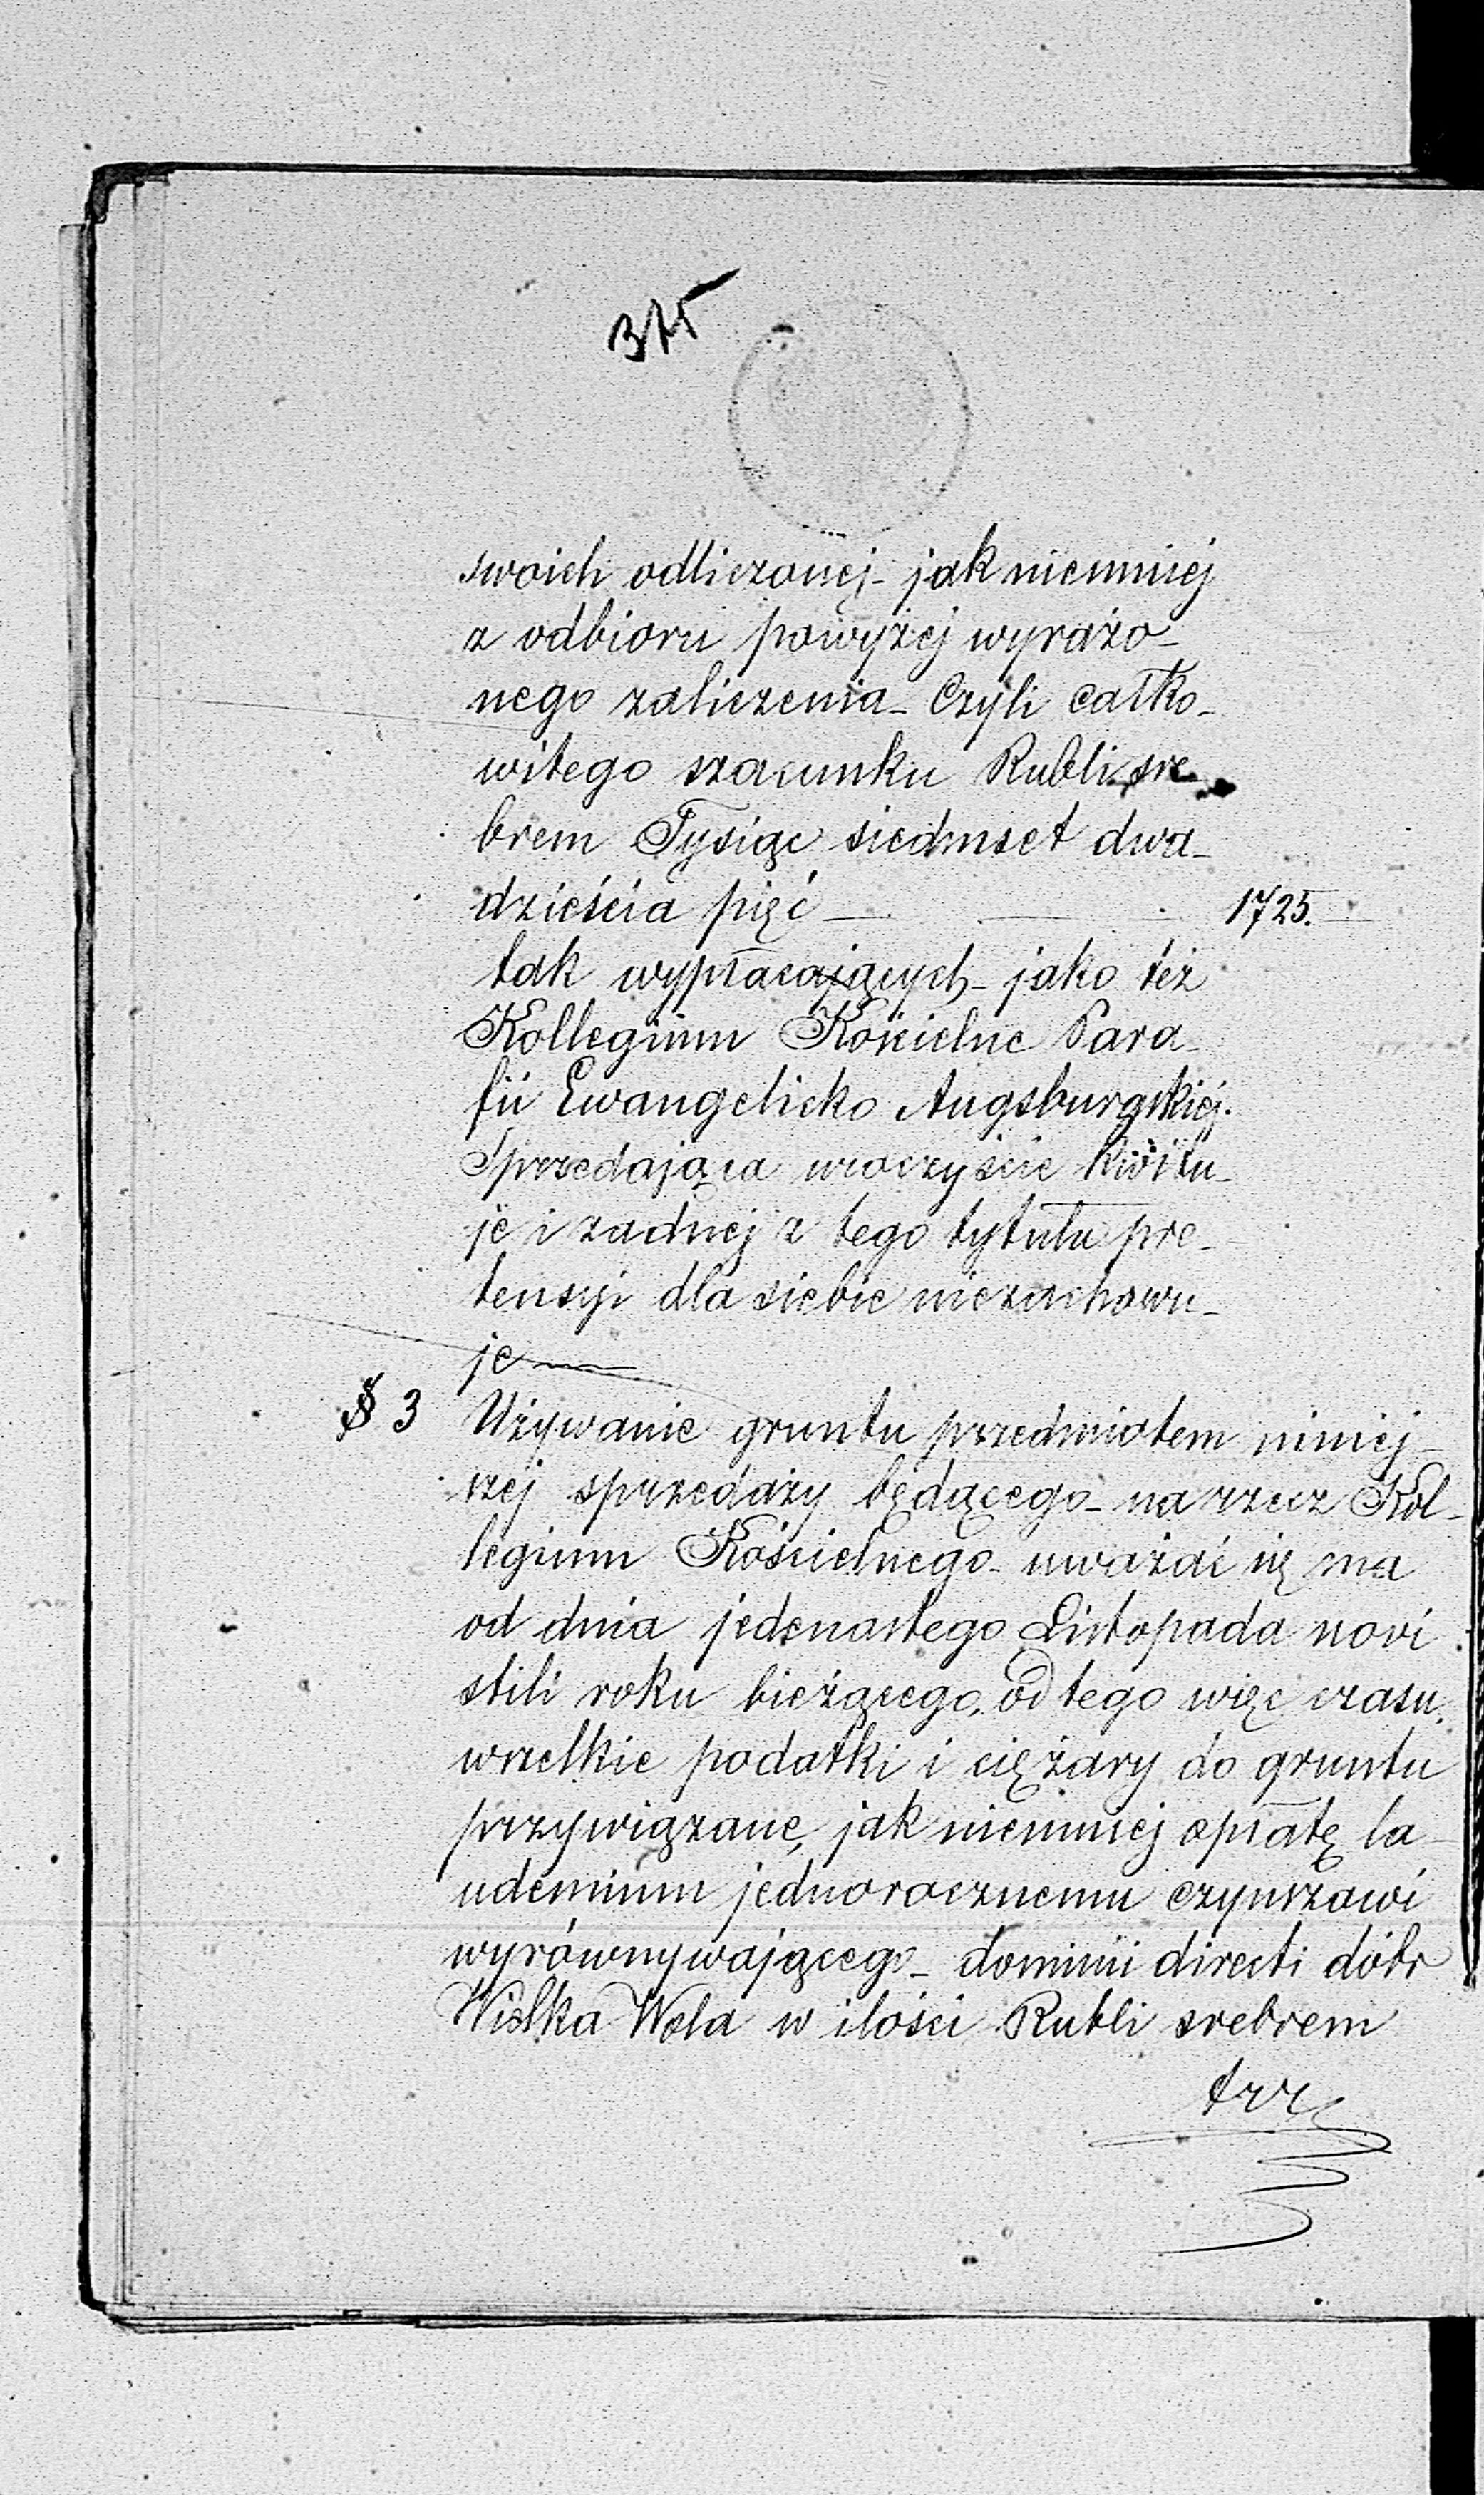 375
swoich odliczonej - jak niemniej
z odbioru powyżej wyrażo-
nego zaliczenia - Czyli całko-
witego szacunku Rubli sre-
brem Tysiąc siedmset dwa-
dzieścia pięć — 1725.
tak wypłacających - jako też
Kollegium Kościelne Para-
fii Ewangelicko Augsburgskiej.
Sprzedająca uroczyście kwitu-
je i żadnej z tego tytułu pre-
tensyi dla siebie niezachowu-
je —
§ 3 Używanie gruntu przedmiotem niniej-
szej sprzedaży będącego - na rzecz Kol-
legium Kościelnego - uważać się ma
od dnia jedenastego Listopada novi
stili roku bieżącego, od tego więc czasu,
wszelkie podatki i ciężary do gruntu
przywiązane, jak niemniej opłatę la-
udemium jednorocznemu czynszowi
wyrównywającego - dominii directi dóbr
Wiślka Wola w ilości Rubli srebrem
trz